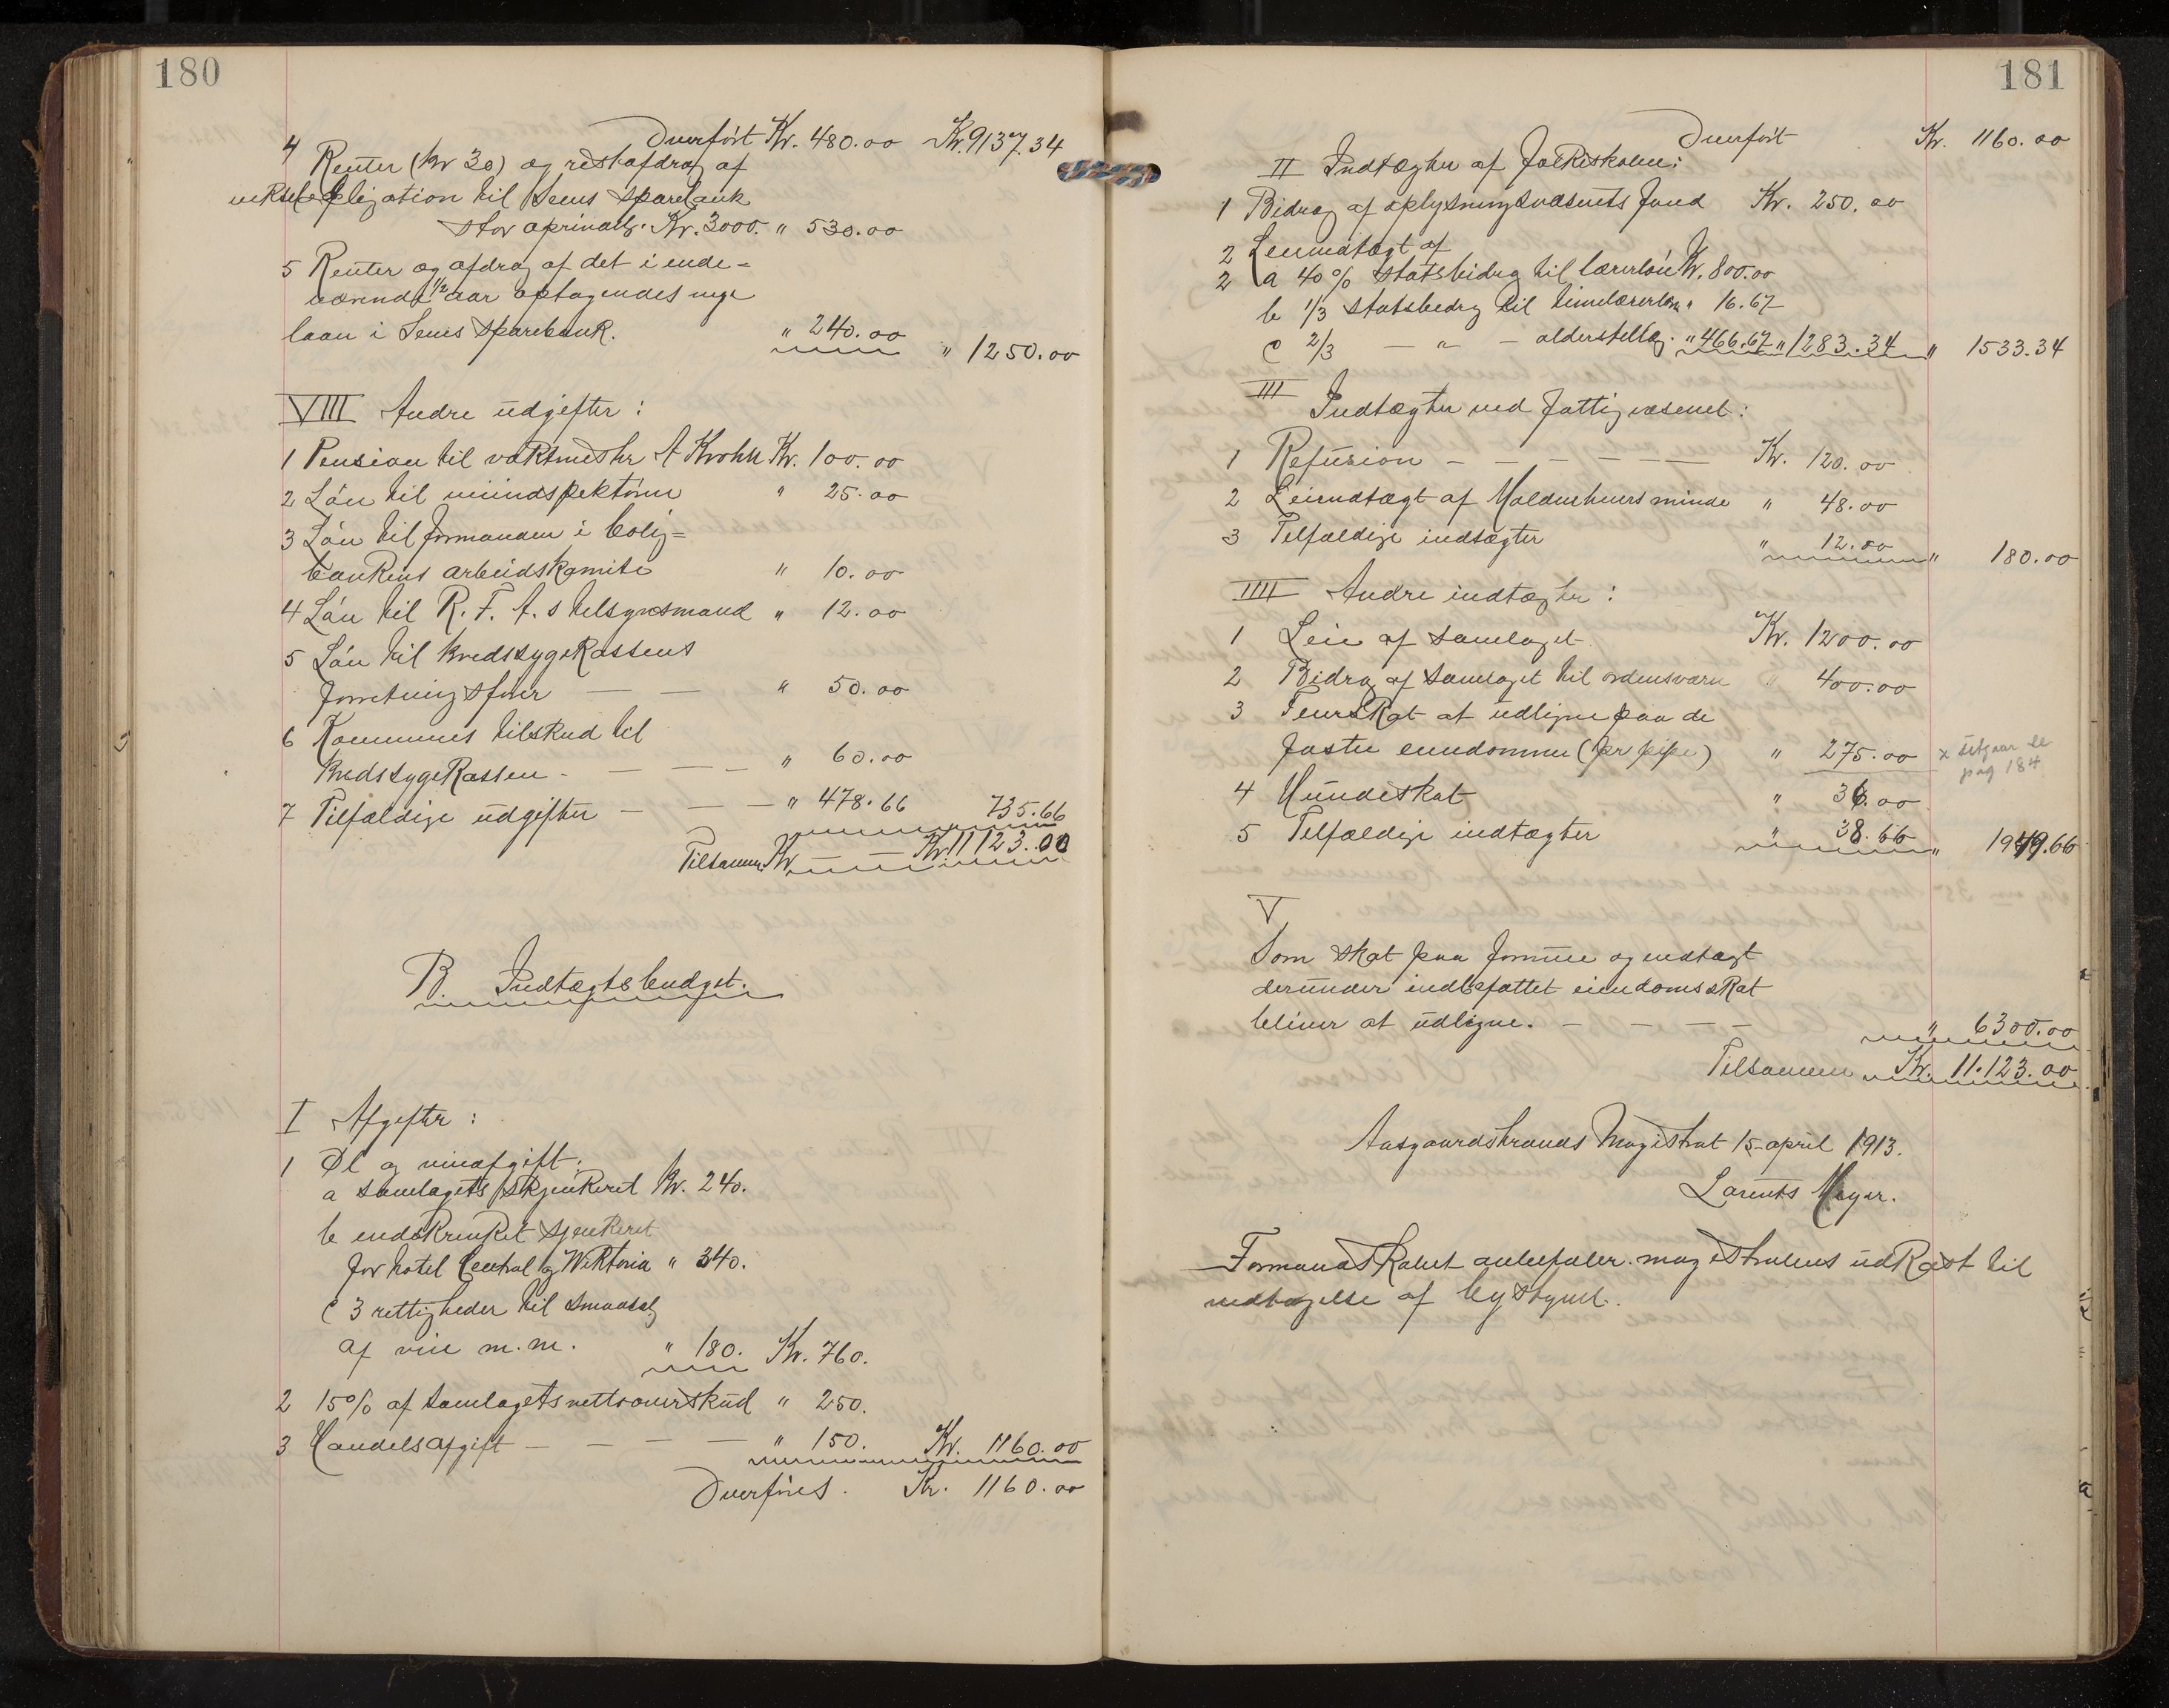 180
Overført Kr. 480.00 Kr. 9137.34
4 Renter (kr 30) og restafdrag af
vekselobligation til Sems sparebank
stor oprindlg. Kr. 3000. " 530.00
5 Renter og afdrag af det i inde-
værende 1/2 aar optagendes nye
laan i Sems Sparebank. " 240.00 " 1250.00
VIII Andre udgifter:
1 Pension til vaktmester A Krohn Kr. 100.00
2 Løn til " 25.00
3 Løn til formanden i bolig=
bankens arbeidskomite " 10.00
4 Løn til R. F. A.s tilsynsmand " 12.00
5 Løn til kredssygekassens
forretningsfører — — " 50.00
6 Kommunes tilskud til
kredssygekassen - — — — " 60.00
7 Tilfældige udgifter — — — " 478.66 735.66
Tilsammen Kr — — Kr 11123.00
B. Indtægtsbudget.
I Afgifter:
1 Øl og vinafgift:
a samlagets skjænkeret kr. 240.
b indskrænket sjænkeret
for hotel Central og Wiktoria " 340.
c 3 rettigheder til smaasalg
af vin m.m. " 180. Kr. 760.
2 15% af samlagets nettooverskud " 250.
3 Handelsafgift — — — — " 150. Kr. 1160.00
Overføres. Kr. 1160.00
181
Overført Kr. 1160.00
II Indtægter af folkeskolen:
1 Bidrag af oplysningsvæsenets fond Kr. 250.00
2 Leieindtægt af
2 a 40% statsbidrag til lærerløn Kr. 800.00
b 1/3 statsbidrag til timelærerløn " 16.67
c 2/3 — " — alderstillæg. " 466.67 " 1283.34 " 1533.34
III
Indtægter ved fattigvæsenet:
1 Refusion — — — — — — Kr. 120.00
2 Leieindtægt af minde " 48.00
3 Tilfældige indtægter " 12.00 " 180.00
IIII Andre indtægter:
1 Leie af samlaget Kr. 1200.00
2 Bidrag af samlaget til ordensværn " 400.00
3 Feierskat at udligne paa de
faste eiendomme (pr pipe) " 275.00 x utgaar se
pag 184
4 Hundeskat " 36.00
5 Tilfældige indtægter " 38.66 " 1949.66
V
Som skat paa formue og indtægt
derunder indbefattet eiendomsskat
bliver at udligne. — — — — " 6300.00
Tilsammen Kr. 11.123.00
Aasgaardstrands Magistrat 15 april 1913.
Lorents Meyer.
Formandskabet anbefaler magistratens udkast til
vedtagelse af bystyret.